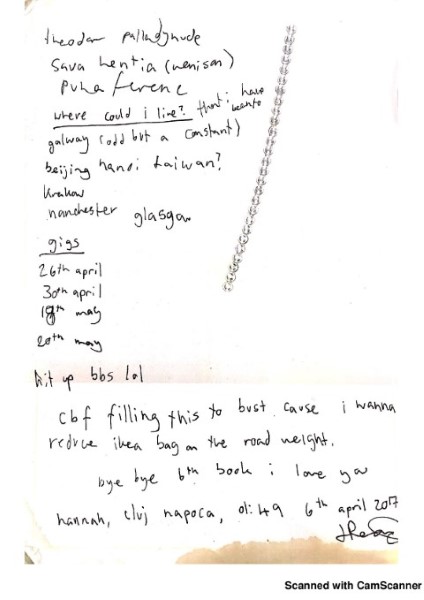 theodor pallady nude
sava hentia (venison)
puha ferenc
where could i live? that i have been to
galway (odd but a constant)
beijing hanoi taiwan?
krakow
manchester glasgow
gigs
26th april
30th april
18th may
20th may
hit up bbs lol
cbf filling this to bust cause i wanna
reduce ikea bag on the road weight.
bye bye 6th book i love you
hannah, cluj napoca, 01:49 6th april 2017
Scanned with CamScanner